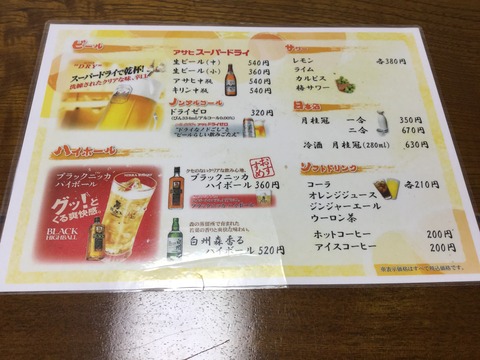 ビール
"DRY"
スーパードライで乾杯!
洗練されたクリアな味、辛口。
アサヒスーパードライ
生ビール(中) 540円
生ビール(小) 360円
アサヒ中瓶 540円
キリン中瓶 540円
ノンアルコール
ドライゼロ 320円
"ドライなノドごし"と
ハイボール
ブラックニッカ
ハイボール
グッ!と
くる爽快感。
BLACK
HIGHBALL
クセのないクリアな飲み心地。
ブラックニッカ
ハイボール 360円
おすすめ
森の蒸留所で育まれた
白州森香る
ハイボール 520円
サワー
レモン 各380円
ライム
カルピス
梅サワー
日本酒
月桂冠 一合 350円
二合 670円
冷酒 月桂冠(280ml) 630円
ソフトドリンク
コーラ 各210円
オレンジジュース
ジンジャーエール
ウーロン茶
ホットコーヒー 200円
アイスコーヒー 200円
※表示価格はすべて税込価格です。